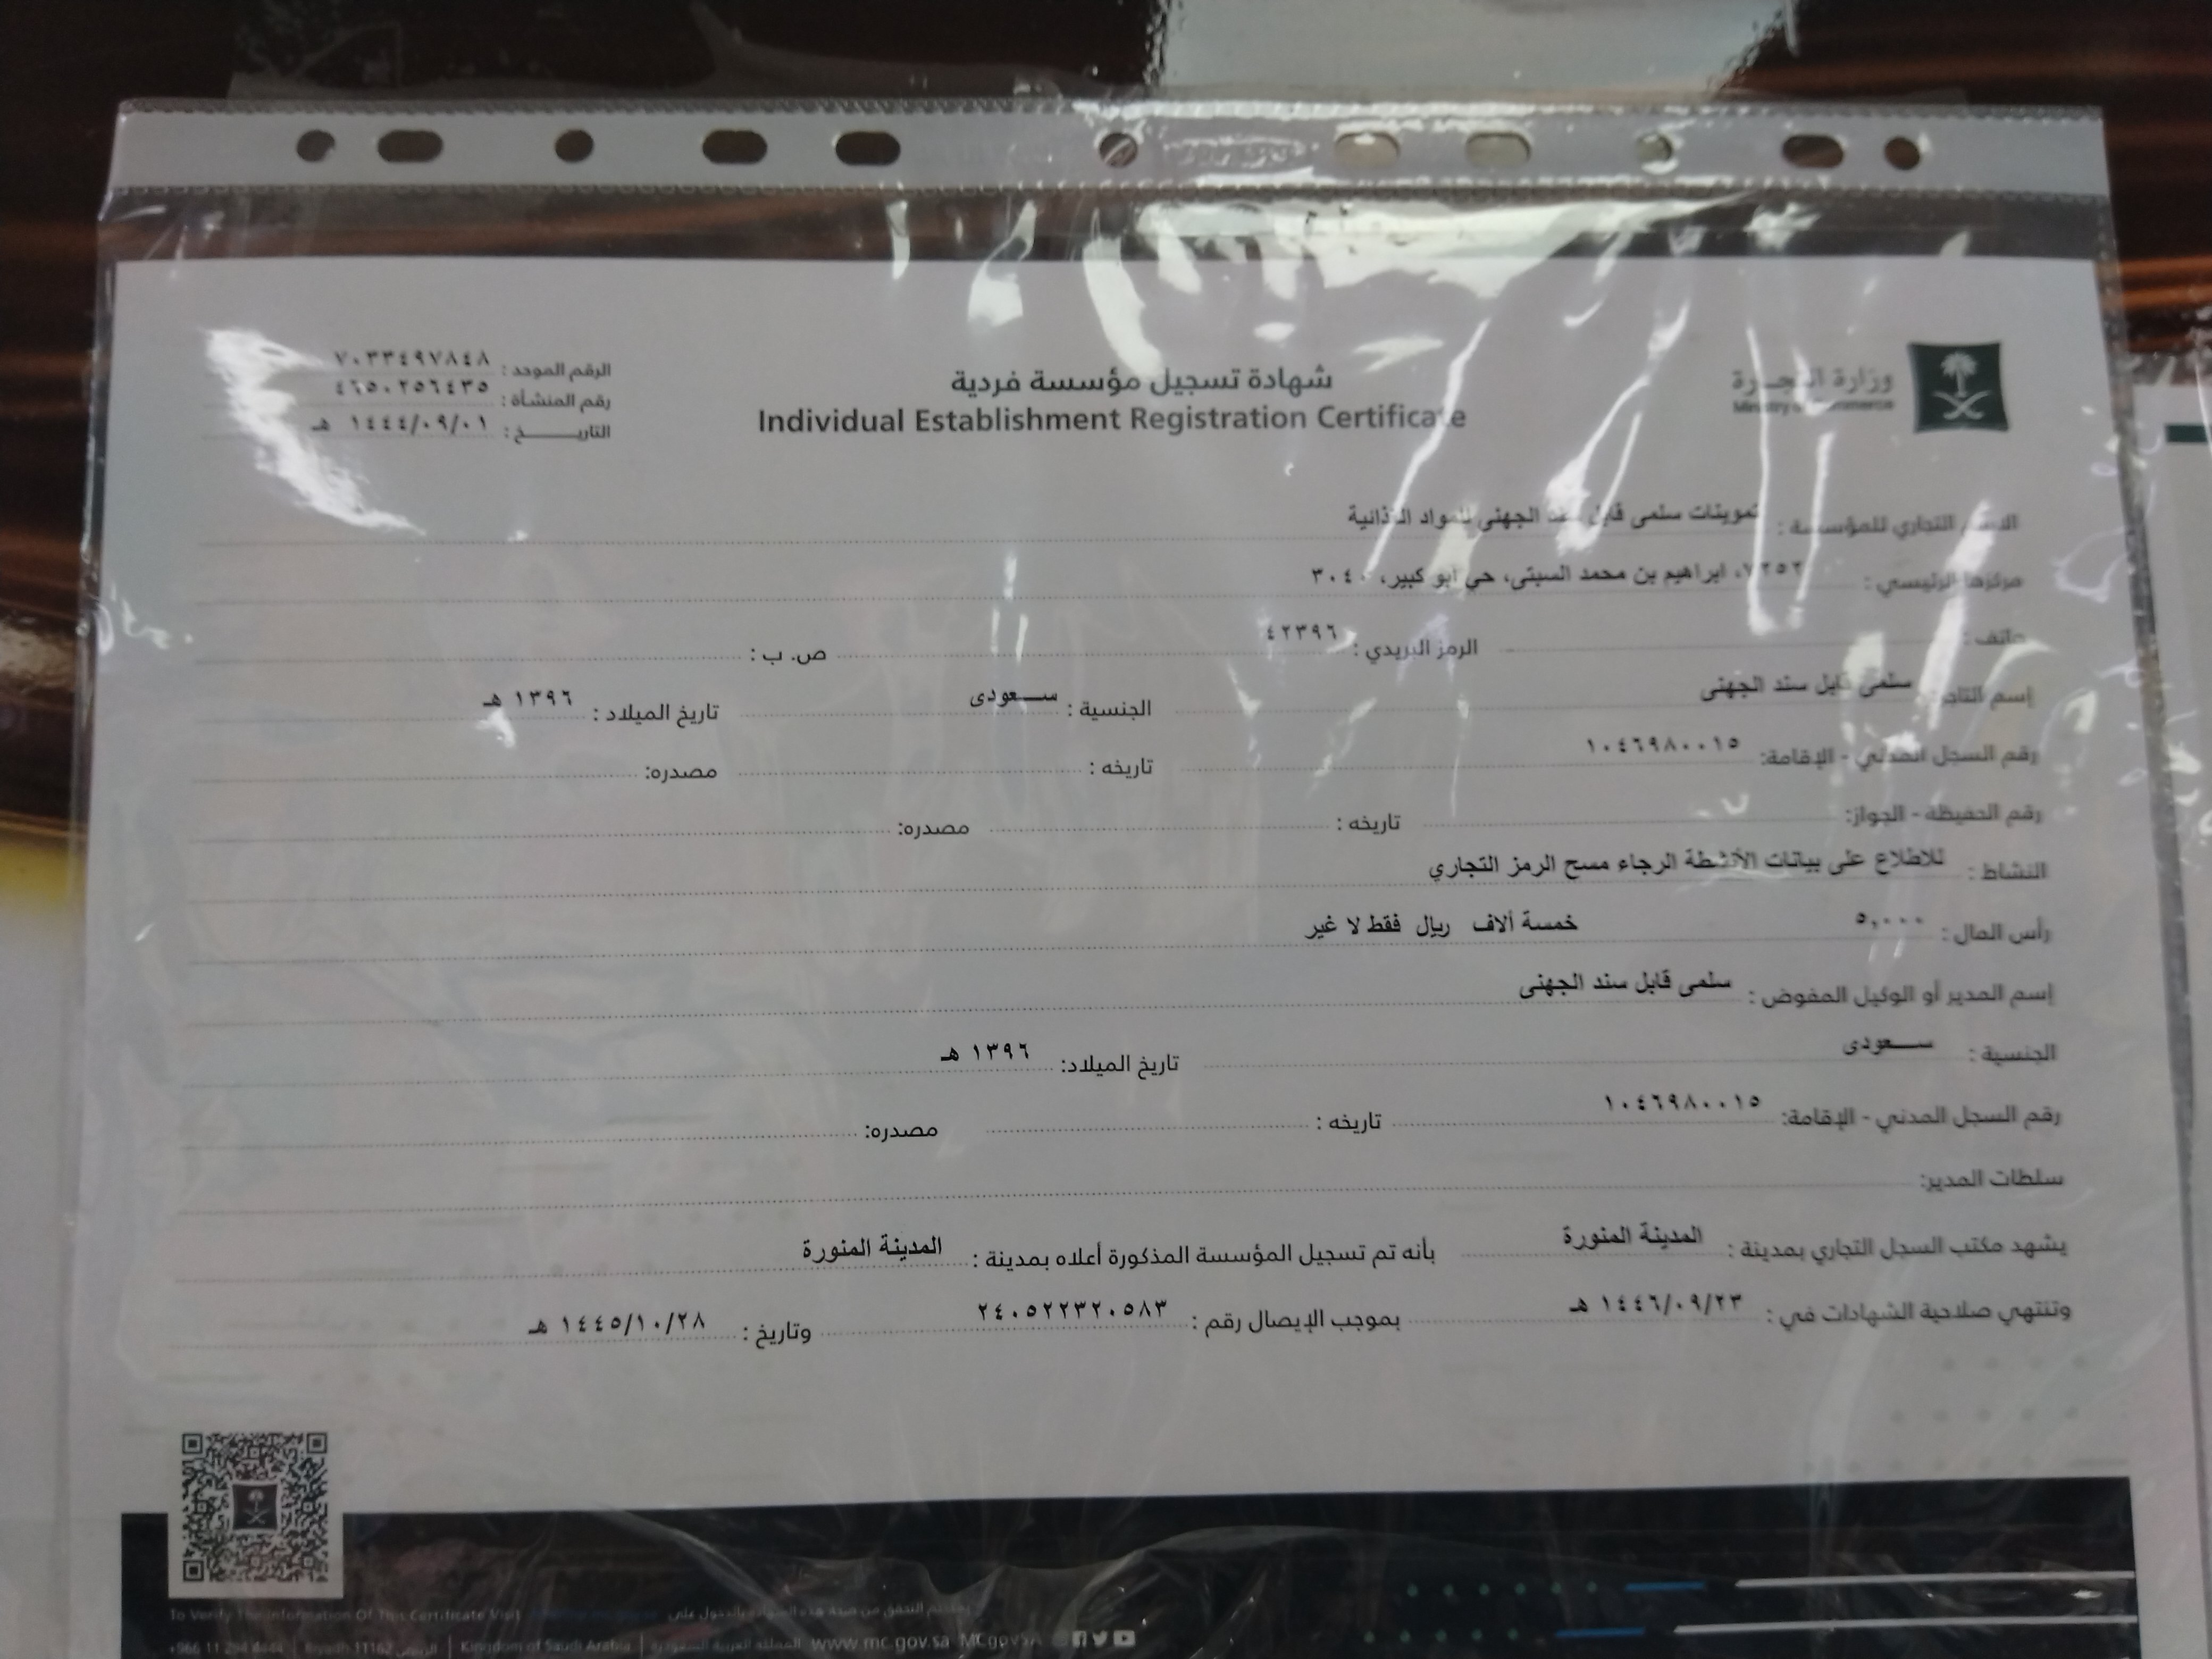 وزارة التجارة
Ministry of Commerce
شهادة تسجيل مؤسسة فردية
Individual Establishment Registration Certificate
الرقم الموحد : ٧٠٣٣٤٩٧٨٤٨
رقم المنشأة : ٤٦٥٠٢٥٦٤٣٥
التاريـــــــخ : ١٤٤٤/٠٩/٠١ هـ
الاسم التجاري للمؤسسة : تموينات سلمى قابل سند الجهنى للمواد الغذائية
مركزها الرئيسي : ٧٢٥٢، ابراهيم بن محمد السبتى، حي ابو كبير، ٣٠٤٠
هاتف : الرمز البريدي : ٤٢٣٩٦ ص. ب :
إسم التاجر : سلمى قابل سند الجهنى الجنسية : ســـعودى تاريخ الميلاد : ١٣٩٦ هـ
رقم السجل المدني - الإقامة: ١٠٤٦٩٨٠٠١٥ تاريخه : مصدره:
رقم الحفيظة - الجواز: تاريخه : مصدره:
النشاط : للاطلاع على بيانات الأنشطة الرجاء مسح الرمز التجاري
رأس المال : ٥,٠٠٠ خمسة ألاف ريال فقط لا غير
إسم المدير أو الوكيل المفوض : سلمى قابل سند الجهنى
الجنسية : ســـعودى تاريخ الميلاد: ١٣٩٦ هـ
رقم السجل المدني - الإقامة: ١٠٤٦٩٨٠٠١٥ تاريخه : مصدره:
سلطات المدير:
يشهد مكتب السجل التجاري بمدينة : المدينة المنورة بأنه تم تسجيل المؤسسة المذكورة أعلاه بمدينة : المدينة المنورة
وتنتهي صلاحية الشهادات في : ١٤٤٦/٠٩/٢٣ هـ بموجب الإيصال رقم : ٢٤٠٥٢٢٣٢٠٥٨٣ وتاريخ : ١٤٤٥/١٠/٢٨ هـ
To Verify The Information Of This Certificate Visit
Riyadh 11162 الرياض | Kingdom of Saudi Arabia | المملكة العربية السعودية www.mc.gov.sa MCgovSA